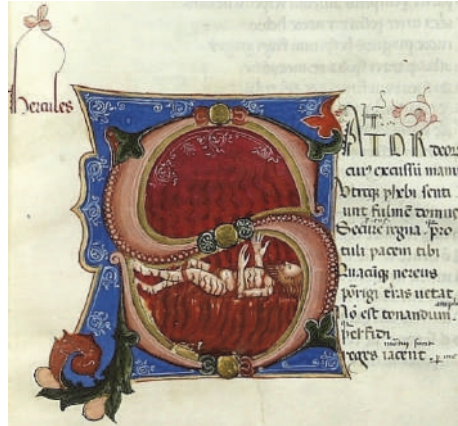 hercules
SATOR deor
cui' excussū manu
Vtreqȝ phebi senti
unt fulmē domus
Secure regna . pro
tuli pacem tibi
Quacūqȝ nereus
porrigi t̄ras uetat
Nō est tonandum .
perfidi
reges iacent .